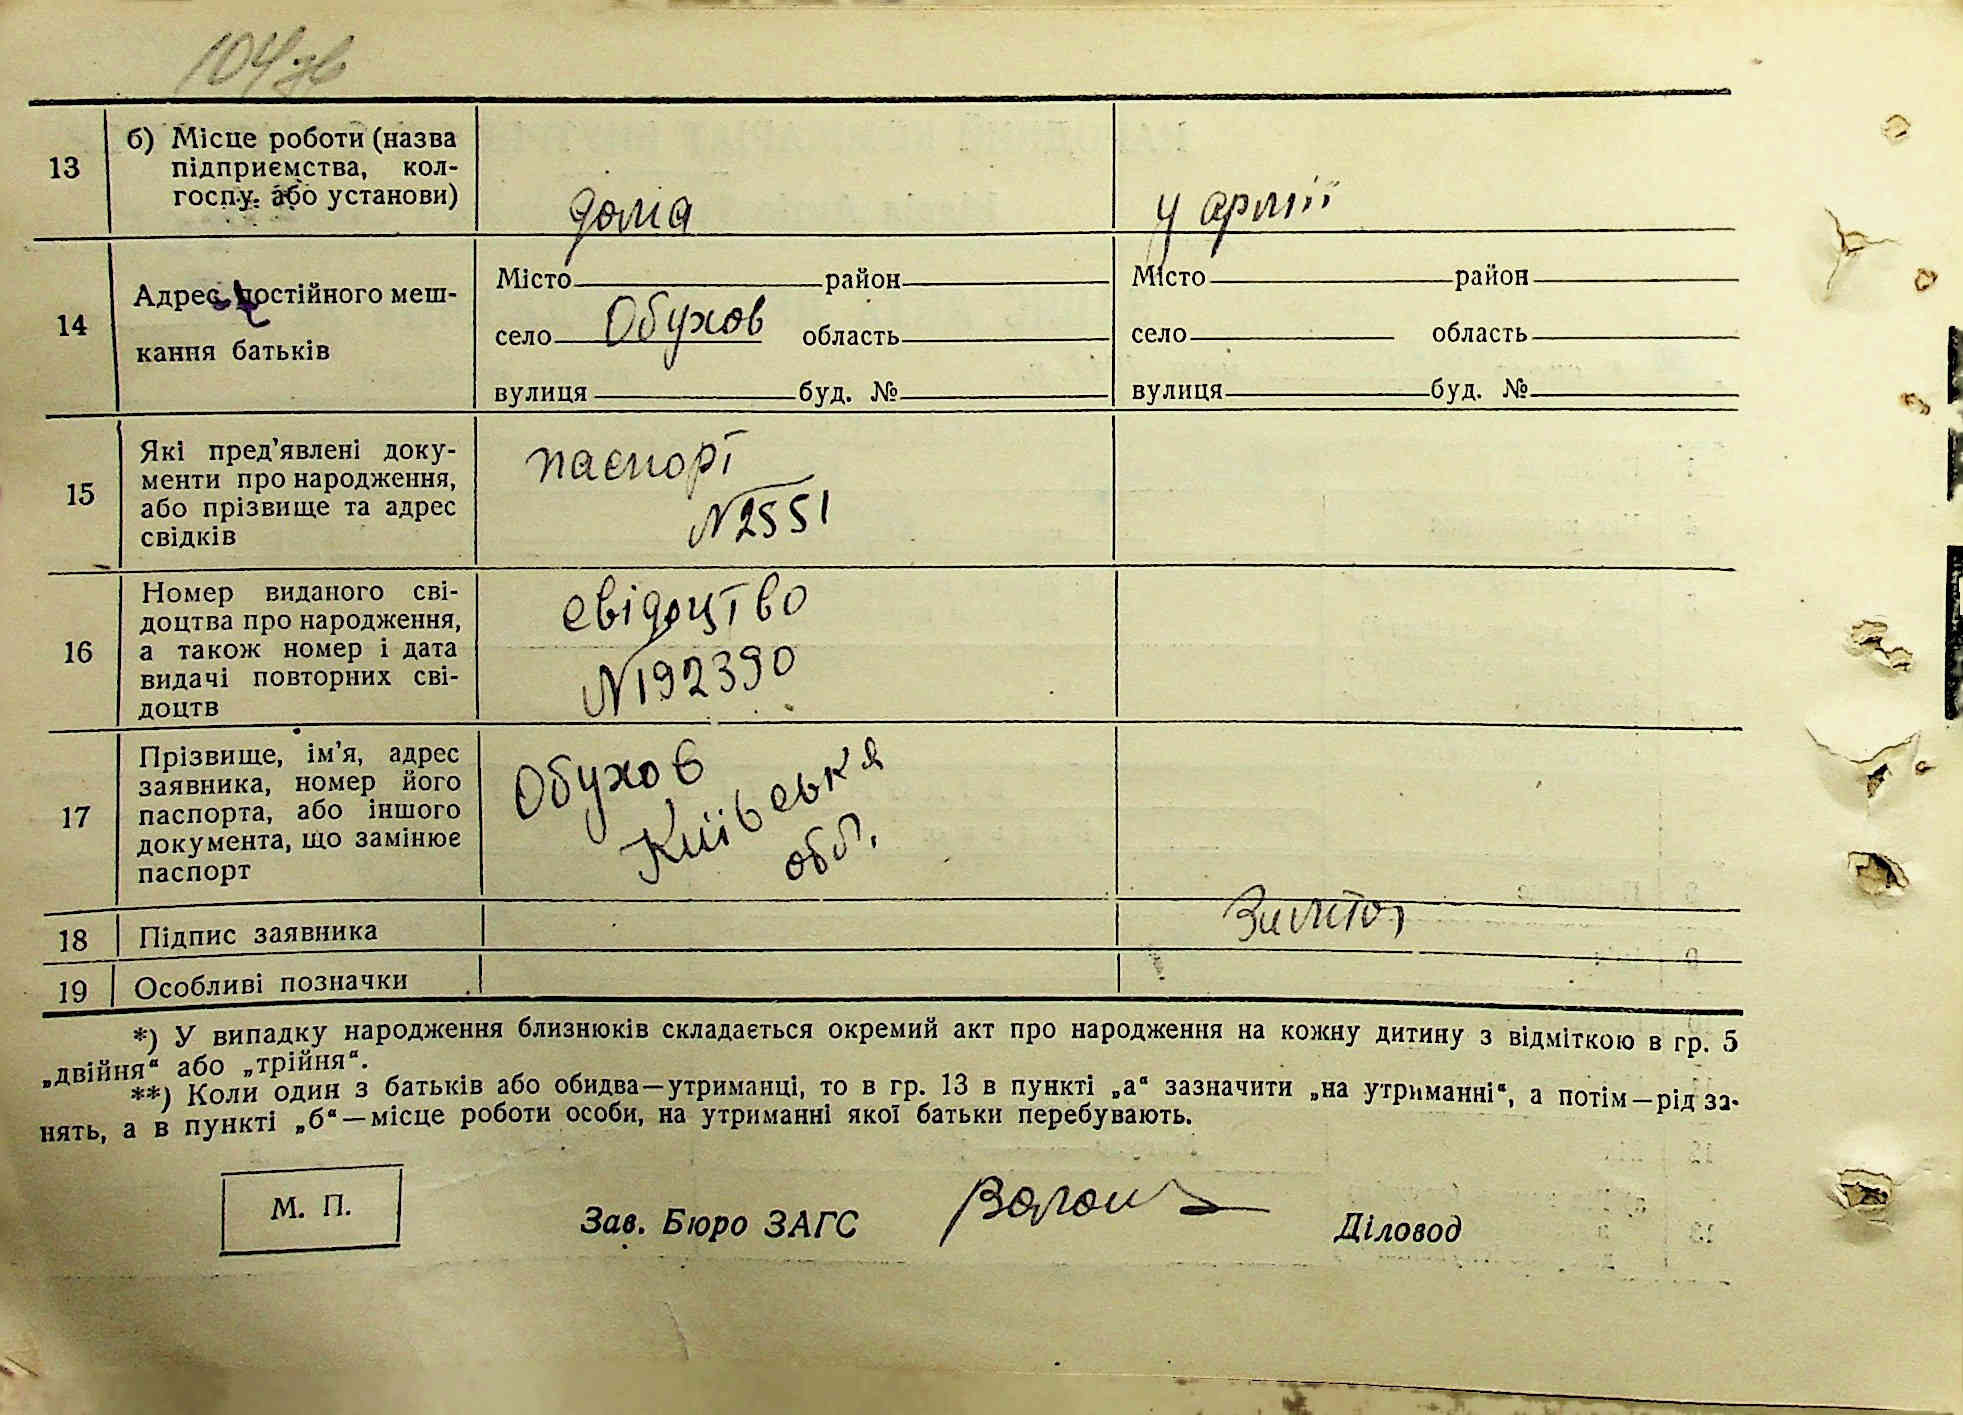 104 зв
13
б) Місце роботи (назва
підприємства, кол-
госпу, або установи)
дома
у армії
14
Адрес постійного меш-
кання батьків
Місто район
село Обухов область
вулиця буд. №
Місто район
село область
вулиця буд. №
15
Які пред'явлені доку-
менти про народження,
або прізвище та адрес
свідків
паспорт
№2551
16
Номер виданого сві-
доцтва про народження,
а також номер і дата
видачі повторних сві-
доцтв
свідоцтво
№192390
17
Прізвище, ім'я, адрес
заявника, номер його
паспорта, або іншого
документа, що замінює
паспорт
Обухов
Київська
обл.
18
Підпис заявника
19
Особливі позначки
*) У випадку народження близнюків складається окремий акт про народження на кожну дитину з відміткою в гр. 5
„двійня“ або „трійня“.
**) Коли один з батьків або обидва—утриманці, то в гр. 13 в пункті „а“ зазначити „на утриманні“, а потім—рід за-
нять, а в пункті „б“—місце роботи особи, на утриманні якої батьки перебувають.
М. П.
Зав. Бюро ЗАГС
Діловод